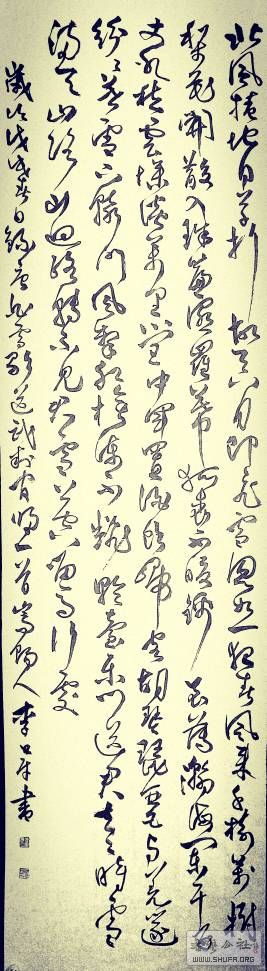 北風捲地白草折胡天八月即飛雪忽如一夜春風來千樹萬樹
梨花開散入珠簾濕羅幕狐裘不暖錦衾薄瀚海闌干百
丈冰愁雲慘淡萬里凝中軍置酒飲歸客胡琴琵琶與羌笛
紛紛暮雪下轅門風掣紅旗凍不翻輪臺東門送君去去時雪
滿天山路山迴路轉不見君雪上空留馬行處
歲次戊戌春日錄雪歌送武判官歸一首嵩陽人李書
WWW.SHUFA.ORG